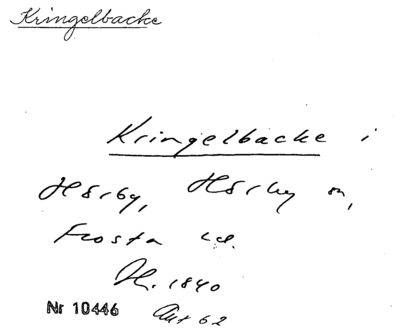 Kringelbacke
Kringelbacke i
Hörby, Hörby sn,
Frosta hd.
H. 1840
Nr 10446 Akt 62